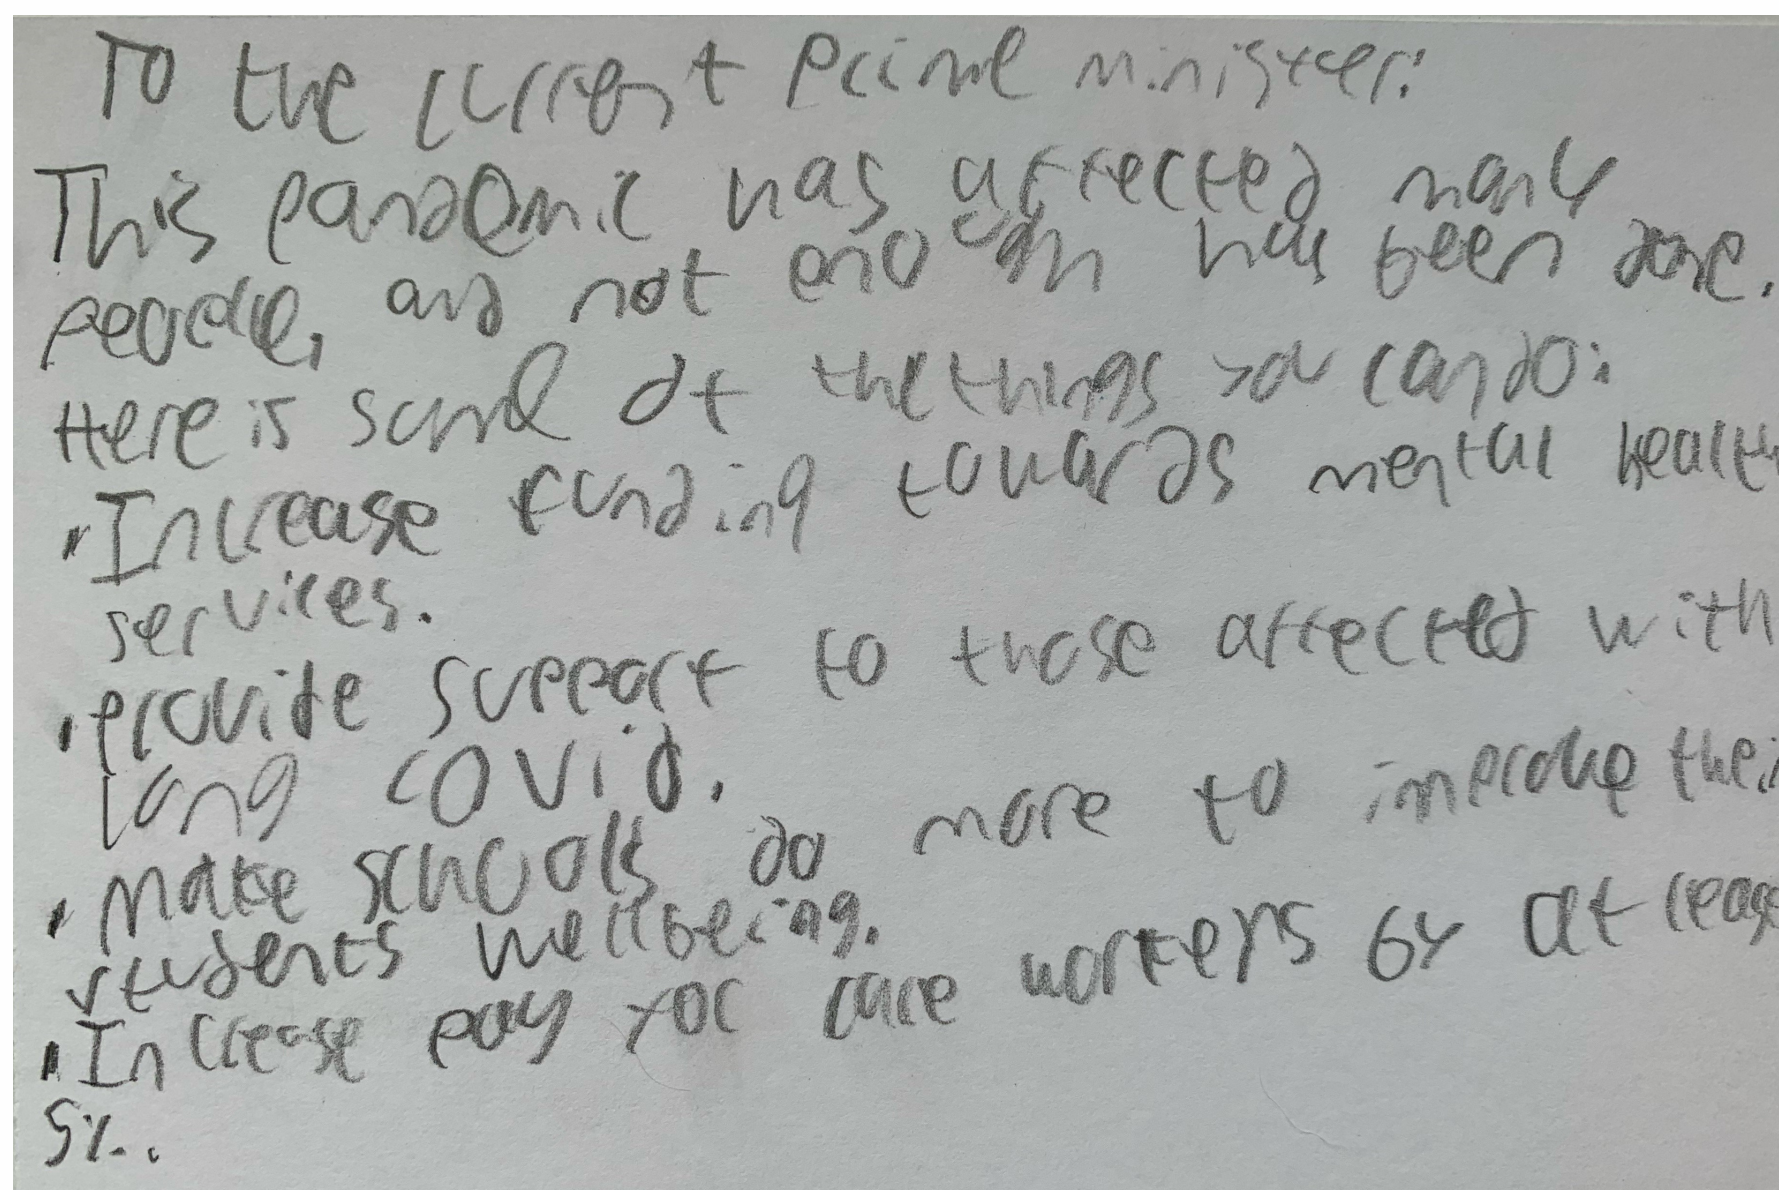 To the current prime minister:
This pandemic has affected many
people, and not enough has been done.
Here is some of the things you can do:
• Increase funding towards mental health
services.
• provide support to those affected with
long covid.
• Make schools do more to improve thei
students wellbeing.
• Increase pay for care workers by at leas
5%.